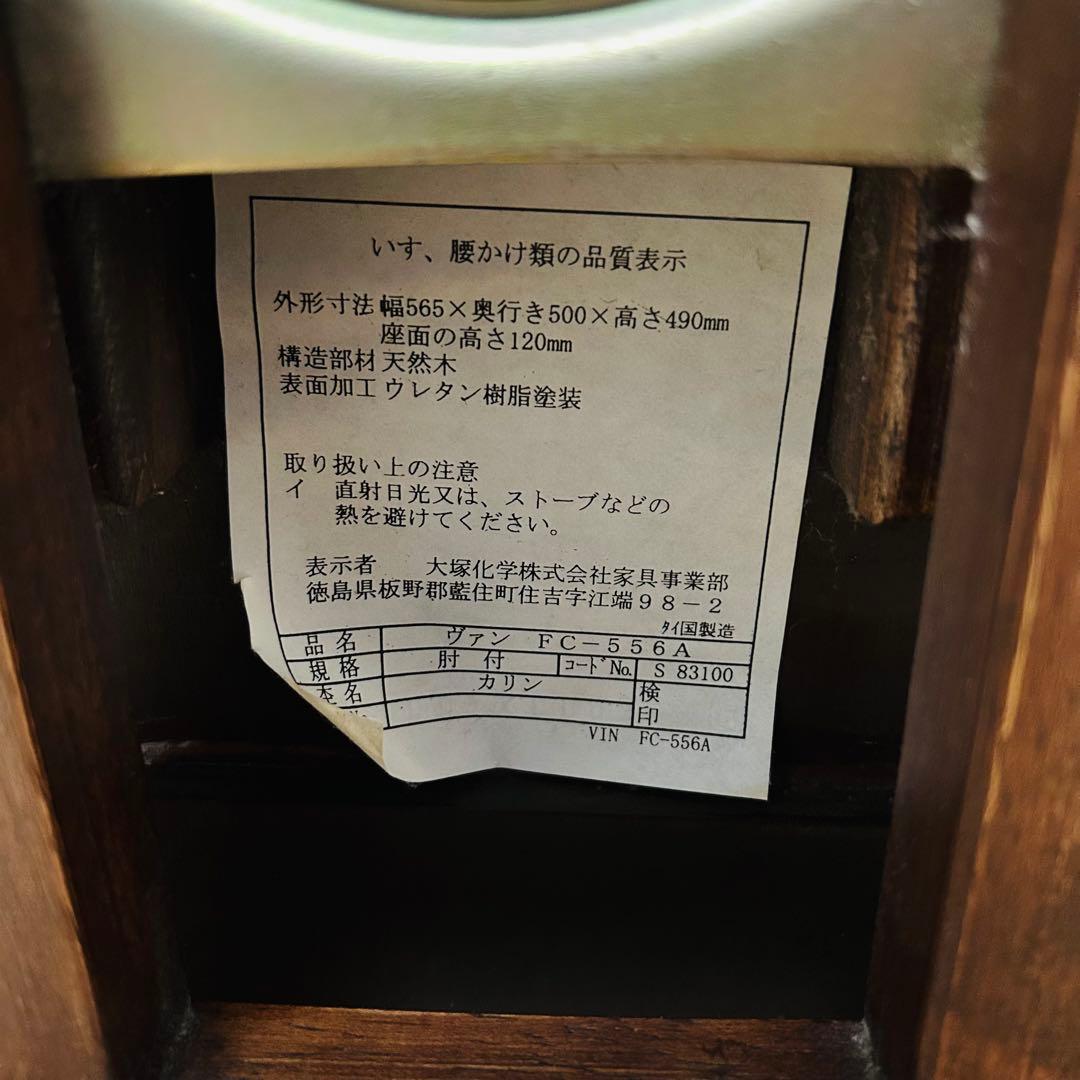 いす、腰かけ類の品質表示
外形寸法 幅565×奥行き500×高さ490mm
座面の高さ120mm
構造部材 天然木
表面加工 ウレタン樹脂塗装
取り扱い上の注意
イ 直射日光又は、ストーブなどの
熱を避けてください。
表示者 大塚化学株式会社家具事業部
徳島県板野郡藍住町住吉字江端98-2
タイ国製造
品名 ヴァン FC-556A
規格 肘付 コードNo. S 83100
本名 カリン 検
印
VIN FC-556A